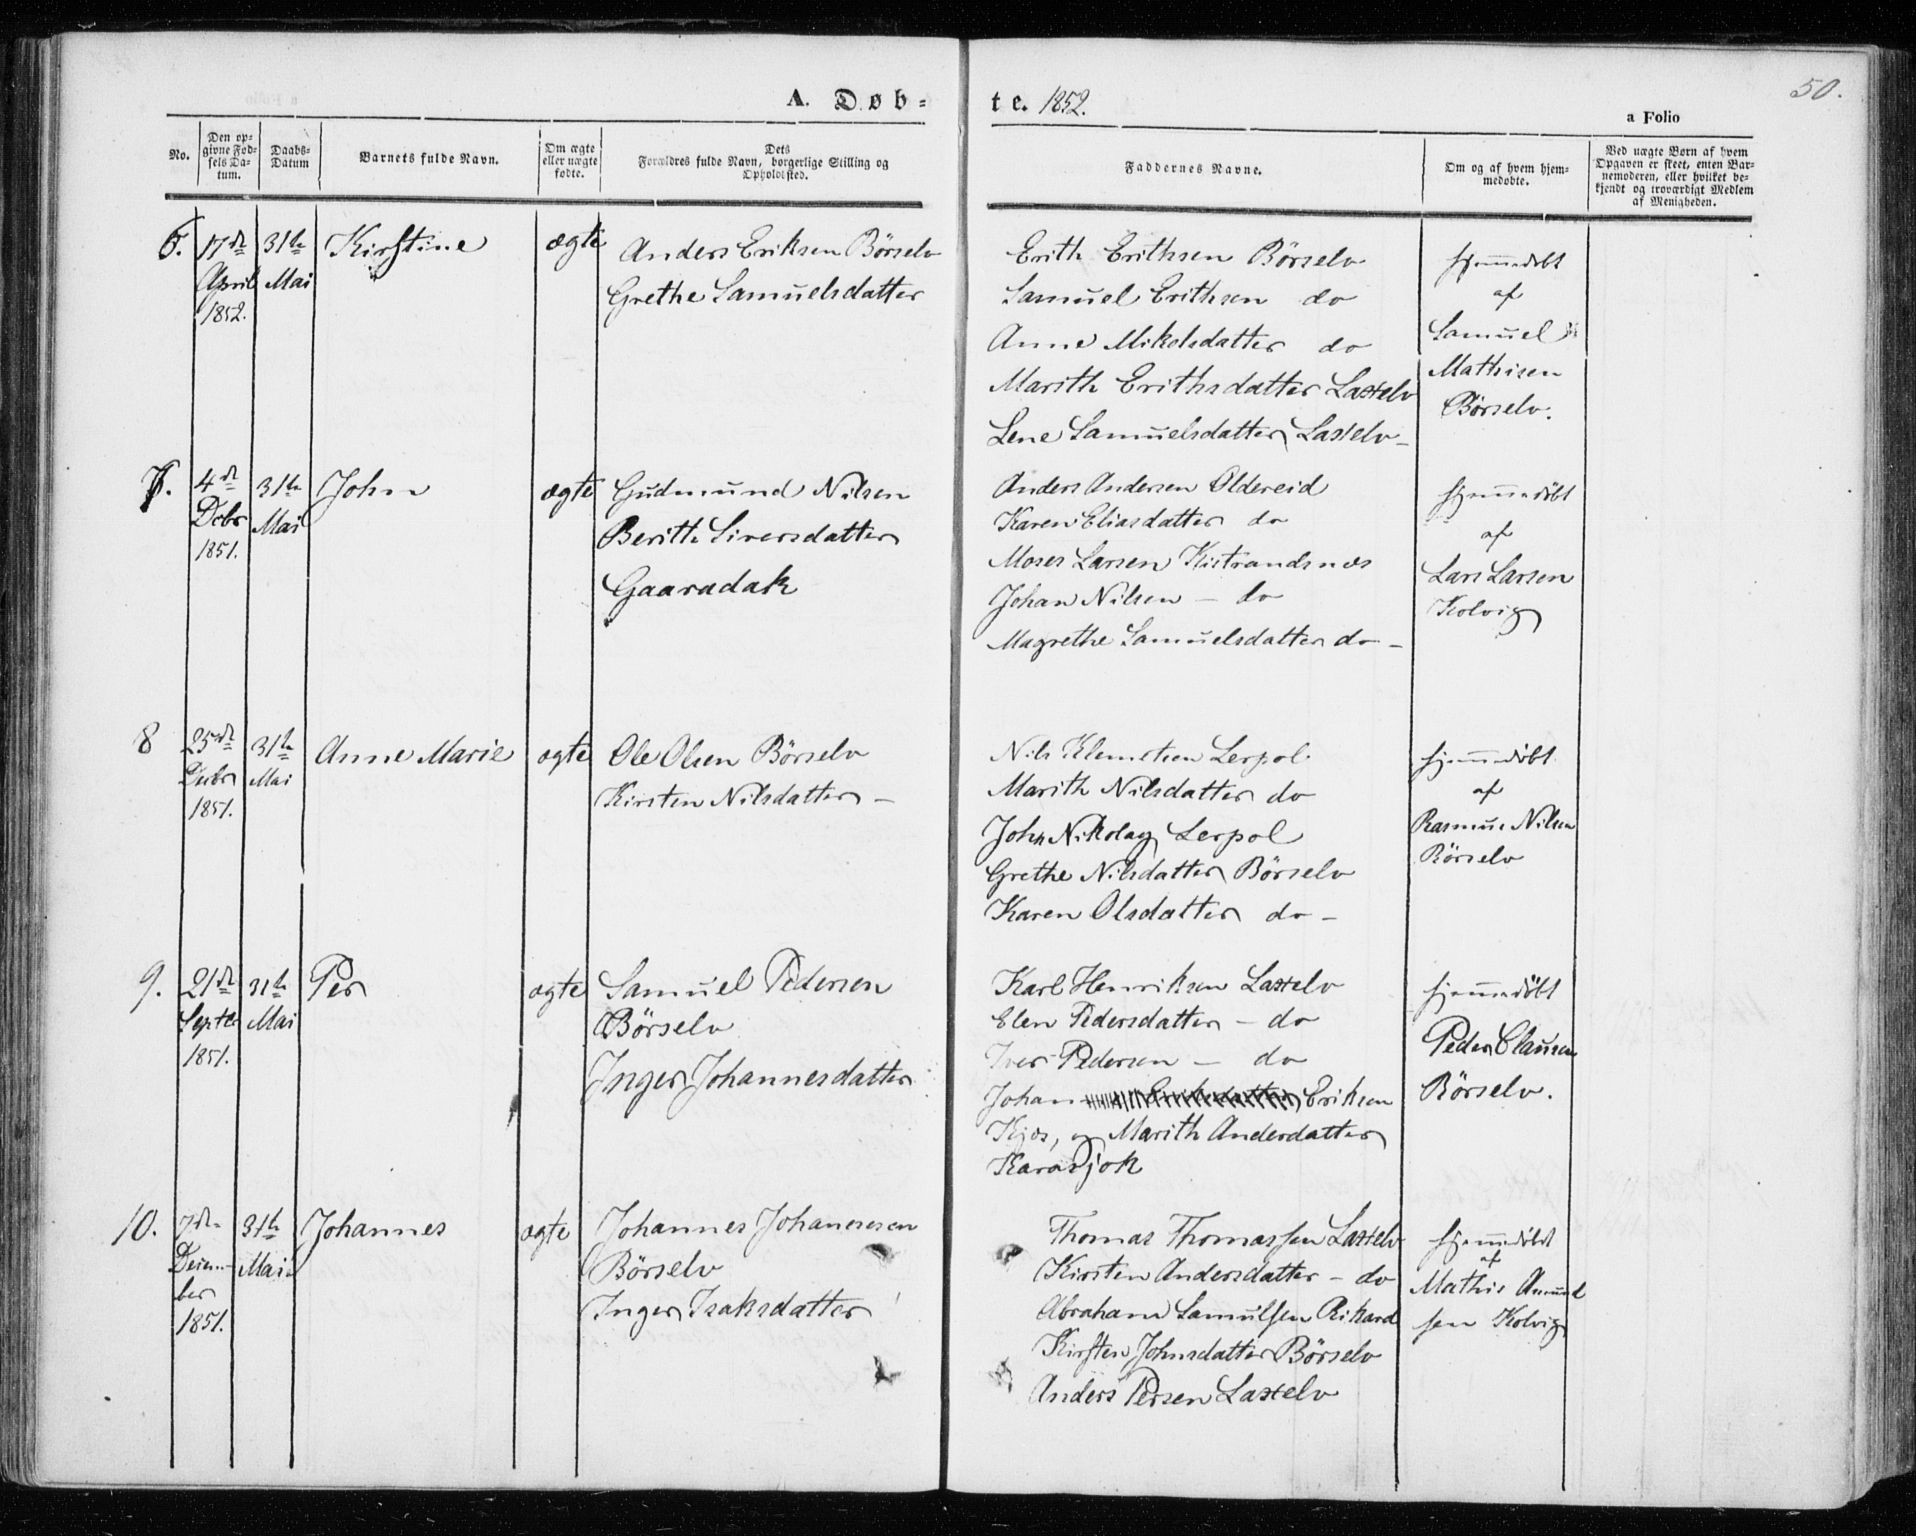 50.
A. Døb=
te. 1852.
a Folio
No.
Den op=
givne Fød=
sels Da=
tum.
Daabs=
Datum
Barnets fulde Navn.
Om ægte
eller uægte
fødte.
Dets
Forældres fulde Navn, borgerlige Stilling og
Opholdssted.
Faddernes Navne.
Om og af hvem hjem=
medøbte.
Ved uægte Børn af hvem
Opgaven er skeet, enten Bar=
nemoderen, eller hvilket be=
kjendt og troværdigt Medlem
af Menigheden.
6.
17de
April
1852.
31te
Mai
Kirstine
ægte
Anders Eriksen Börselv
Grethe Samuelsdatter
Erith Erithsen Börselv
Samuel Erithsen do
Anne Mikelsdatter do
Marith Erithsdatter Laxelv
Lene Samuelsdatter Laxelv -
Hjemmedøbt
af
Samuel
Mathisen
Börselv.
7.
4de
Decbr
1851.
31te
Mai
John
ægte
Gudmund Nilsen
Berith Siversdatter
Gaaradak
Anders Andersen Oldereid
Karen Eliasdatter do
Moses Larsen Kistrandsnæs
Johan Nilsen - do
Magrethe Samuelsdatter do -
hjemmedöbt
af
Lars Larsen
Kolvig
8
25de
Decbr
1851.
31te
Mai
Anne Marie
ægte
Ole Olsen Börselv
Kirsten Nilsdatter -
Nils Klemetsen Lerpol
Marith Nilsdatter do
John Nikolay Lerpol
Grethe Nilsdatter Börselv
Karen Olsdatter do -
hjemmedöbt
af
Rasmus Nilsen
Börselv
9.
21de
Septbr
1851.
31te
Mai
Per
ægte
Samuel Pedersen
Börselv
Inger Johannesdatter
Karl Henriksen Laxelv
Elen Pedersdatter - do
Iver Pedersen - do
Johan Eriksen
Kjæs, og Marith Andersdatter
Karasjok
hjemmedöbt
Peder Clausen
Börselv.
10.
7de
Decem-
ber
1851.
31te
Mai
Johannes
ægte
Johannes Johannesen
Börselv
Inger Isaksdatter
Thomas Thomassen Laxelv
Kirsten Andersdatter - do
Abraham Samulsen Rikard
Kirsten Johnsdatter Börselv
Anders Persen Laxelv
hjemmedöbt
af
Mathis Amund
sen Kolvig